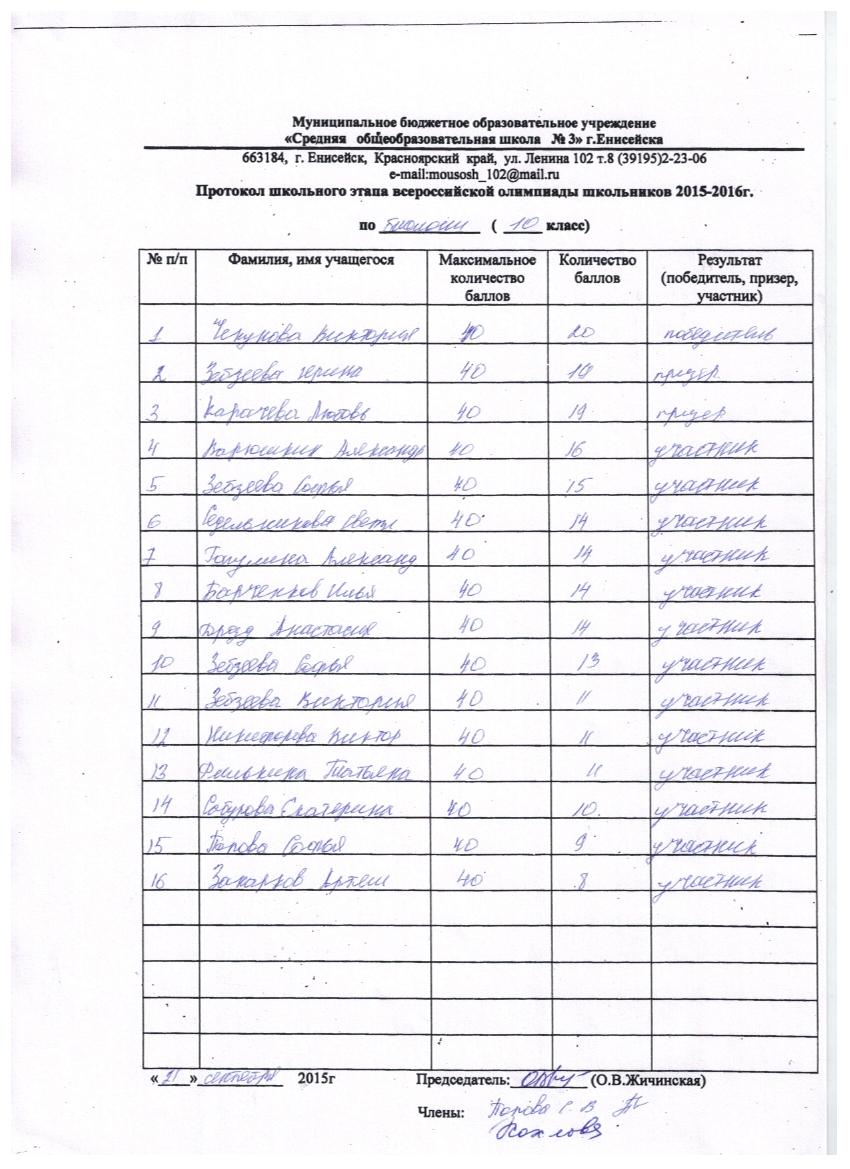 Муниципальное бюджетное образовательное учреждение
«Средняя общеобразовательная школа № 3» г.Енисейска
663184, г. Енисейск, Красноярский край, ул. Ленина 102 т.8 (39195)2-23-06
e-mail:mousosh_102@mail.ru
Протокол школьного этапа всероссийской олимпиады школьников 2015-2016г.
по биологии ( 10 класс)
№ п/п Фамилия, имя учащегося Максимальное количество баллов Количество баллов Результат (победитель, призер, участник)
1 Чекунова Виктория 40 20 победитель
2 Зебзеева 40 19 призер
3 Карачева Любовь 40 19 призер
4 Карюшкин Александр 40 16 участник
5 Зебзеева Софья 40 15 участник
6 Седельникова 40 14 участник
7 Александ 40 14 участник
8 Барченков Илья 40 14 участник
9 Дрозд Анастасия 40 14 участник
10 Зебзеева Софья 40 13 участник
11 Зебзеева Виктория 40 11 участник
12 Никифорова Виктор 40 11 участник
13 Татьяна 40 11 участник
14 Екатерина 40 10. участник
15 Попова Софья 40 9 участник
16 Захарков Артем 40 8 участник
« 21 » сентября 2015г Председатель: (О.В.Жичинская)
Члены: Попова С. В